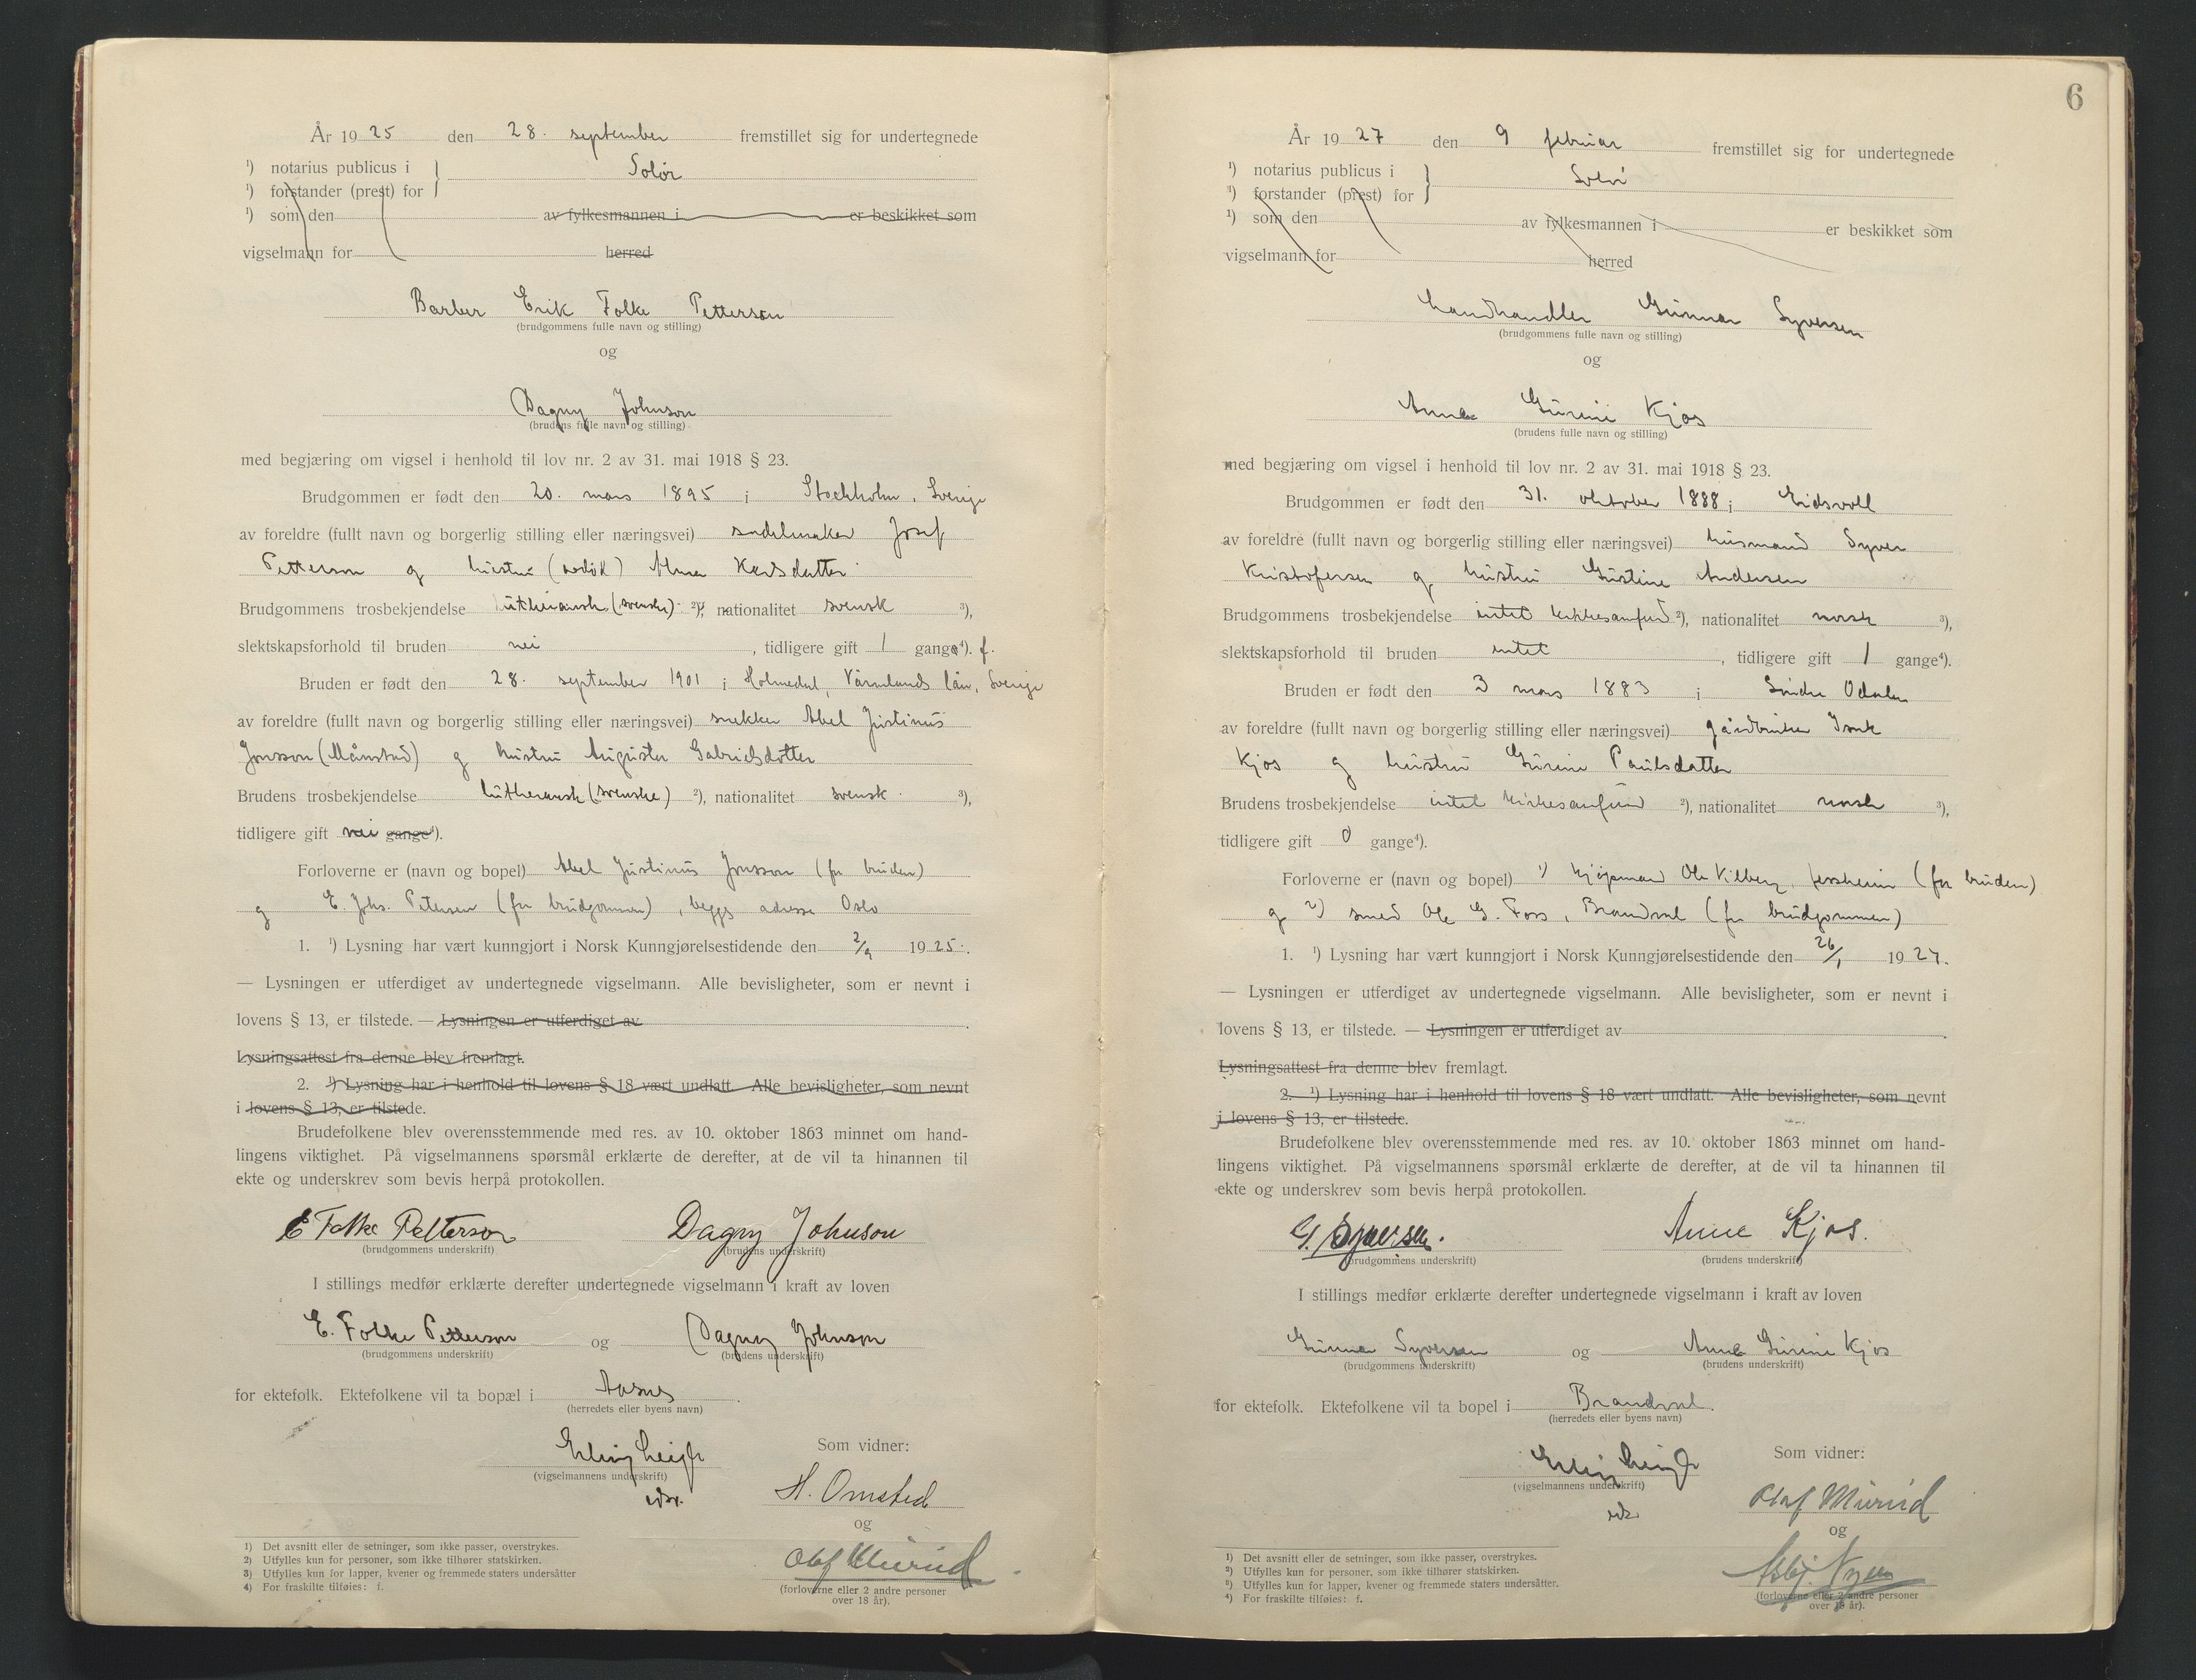 År 1925 den 28. september fremstillet sig for undertegnede
¹) notarius publicus i
Solør
¹) forstander (prest) for
¹) som den av fylkesmannen i er beskikket som
vigselmann for herred
Barber Erik Folke Petterson
(brudgommens fulle navn og stilling)
og
Dagny Johnson
(brudens fulle navn og stilling)
med begjæring om vigsel i henhold til lov nr. 2 av 31. mai 1918 § 23.
Brudgommen er født den 20. mars 1895 i Stockholm, Sverige
av foreldre (fullt navn og borgerlig stilling eller næringsvei) sadelmaker Josef
Petterson og hustru (avdøk) Alma Karlsdatter
Brudgommens trosbekjendelse lutheransk (svenske) ²), nationalitet svensk ³),
slektskapsforhold til bruden nei, tidligere gift 1 gange⁴). f.
Bruden er født den 28. september 1901 i Holmedal, Värmlands län, Sverige
av foreldre (fullt navn og borgerlig stilling eller næringsvei) snekker Abel Justinus
Jonsson (Månstad) og hustru Augusta Gabrielsdotter
Brudens trosbekjendelse lutheransk (svenske) ²), nationalitet svensk ³),
tidligere gift nei gange⁴).
Forloverne er (navn og bopel) Abel Justinus Jonsson (for bruden)
og E. Johs. Petersen (for brudgommen), begges adresse Oslo
1. ¹) Lysning har vært kunngjort i Norsk Kunngjørelsestidende den 2/9 1925.
— Lysningen er utferdiget av undertegnede vigselmann. Alle bevisligheter, som er nevnt i
lovens § 13, er tilstede. — Lysningen er utferdiget av
Lysningsattest fra denne blev fremlagt.
2. ¹) Lysning har i henhold til lovens § 18 vært undlatt. Alle bevisligheter, som nevnt
i lovens § 13, er tilstede.
Brudefolkene blev overensstemmende med res. av 10. oktober 1863 minnet om hand-
lingens viktighet. På vigselmannens spørsmål erklærte de derefter, at de vil ta hinannen til
ekte og underskrev som bevis herpå protokollen.
E Folke Petterson Dagny Johnson
(brudgommens underskrift) (brudens underskrift)
I stillings medfør erklærte derefter undertegnede vigselmann i kraft av loven
E. Folke Petterson og Dagny Johnson
(brudgommens underskrift) (brudens underskrift)
for ektefolk. Ektefolkene vil ta bopæl i Aasnes.
(herredets eller byens navn)
Som vidner:
(vigselmannens underskrift)
H. Omsted
og
Olaf Murud
(forloverne eller 2 andre personer
over 18 år).
1) Det avsnitt eller de setninger, som ikke passer, overstrykes.
2) Utfylles kun for personer, som ikke tilhører statskirken.
3) Utfylles kun for lapper, kvener og fremmede staters undersåtter
4) For fraskilte tilføies: f.
6
År 1927 den 9 februar fremstillet sig for undertegnede
¹) notarius publicus i
Solør
¹) forstander (prest) for
¹) som den av fylkesmannen i er beskikket som
vigselmann for herred
Landhandler Gunnar Syversen
(brudgommens fulle navn og stilling)
og
Anna Gurine Kjos
(brudens fulle navn og stilling)
med begjæring om vigsel i henhold til lov nr. 2 av 31. mai 1918 § 23.
Brudgommen er født den 31. oktober 1888 i Eidsvoll
av foreldre (fullt navn og borgerlig stilling eller næringsvei) husmand Syver
Kristofersen og hustru Gustine Andersen
Brudgommens trosbekjendelse intet kirkesamfund ²), nationalitet norsk ³),
slektskapsforhold til bruden intet, tidligere gift 1 gange⁴).
Bruden er født den 3 mars 1883 i Søndre Odalen
av foreldre (fullt navn og borgerlig stilling eller næringsvei) gårdbruker Isak
Kjos og hustru Gurine Paulsdatter
Brudens trosbekjendelse intet kirkesamfund ²), nationalitet norsk ³),
tidligere gift 0 gange⁴).
Forloverne er (navn og bopel) 1) kjøpmand Ole Vilberg, Jessheim (for bruden)
og 2) smed Ole G. Foss, Brandval (for brudgommen)
1. ¹) Lysning har vært kunngjort i Norsk Kunngjørelsestidende den 26/1 1927.
— Lysningen er utferdiget av undertegnede vigselmann. Alle bevisligheter, som er nevnt i
lovens § 13, er tilstede. — Lysningen er utferdiget av
Lysningsattest fra denne blev fremlagt.
2. ¹) Lysning har i henhold til lovens § 18 vært undlatt. Alle bevisligheter, som nevnt
i lovens § 13, er tilstede.
Brudefolkene blev overensstemmende med res. av 10. oktober 1863 minnet om hand-
lingens viktighet. På vigselmannens spørsmål erklærte de derefter, at de vil ta hinannen til
ekte og underskrev som bevis herpå protokollen.
G. Syversen. Anne Kjos.
(brudgommens underskrift) (brudens underskrift)
I stillings medfør erklærte derefter undertegnede vigselmann i kraft av loven
Gunnar Syversen og Anna Gurine Kjos
(brudgommens underskrift) (brudens underskrift)
for ektefolk. Ektefolkene vil ta bopel i Brandval.
(herredets eller byens navn)
Som vidner:
(vigselmannens underskrift)
Olaf Murud
og
(forloverne eller 2 andre personer
over 18 år).
1) Det avsnitt eller de setninger, som ikke passer, overstrykes.
2) Utfylles kun for personer, som ikke tilhører statskirken.
3) Utfylles kun for lapper, kvener og fremmede staters undersåtter.
4) For fraskilte tilføies: f.